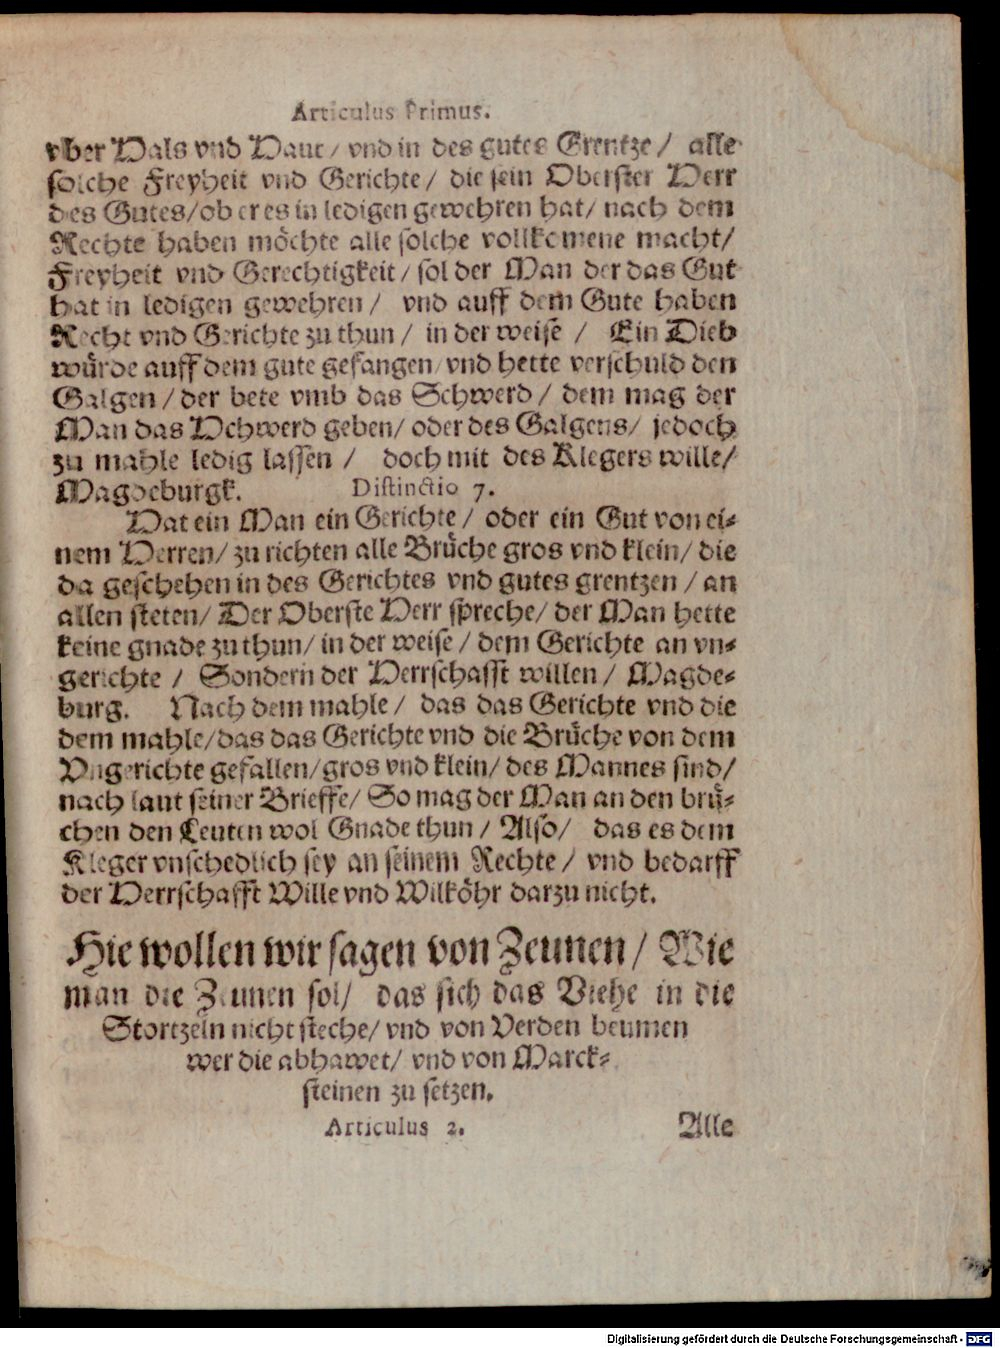 Articulus Primus.
vber Hals vnd Haut / vnd in des gutes Grentze / alle
solche Freyheit vnd Gerichte / die sein Oberster Herr
des Gutes / ob er es in ledigen gewehren hat / nach dem
Rechte haben möchte alle solche vollkomene macht /
Freyheit vnd Gerechtigkeit / sol der Man der das Gut
hat in ledigen gewehren / vnd auff dem Gute haben
Recht vnd Gerichte zu thun / in der weise / Ein Dieb
würde auff dem gute gefangen / vnd hette verschuld den
Galgen / der bete vmb das Schwerd / dem mag der
Man das Schwerd geben / oder des Galgens / jedoch
zu mahle ledig lassen / doch mit des Klegers wille /
Magdeburgk. Distinctio 7.
Hat ein Man ein Gerichte / oder ein Gut von ei-
nem Herren / zu richten alle Brüche gros vnd klein / die
da geschehen in des Gerichtes vnd gutes grentzen / an
allen steten / Der Oberste Herr spreche / der Man hette
keine gnade zu thun / in der weise / dem Gerichte an vn-
gerichte / Sondern der Herrschafft willen / Magde-
burg. Nach dem mahle / das das Gerichte vnd die
dem mahle / das das Gerichte vnd die Brüche von dem
Vngerichte gefallen / gros vnd klein / des Mannes sind /
nach laut seiner Brieffe / So mag der Man an den brü-
chen den Leuten wol Gnade thun / Also / das es dem
Kleger vnschedlich sey an seinem Rechte / vnd bedarff
der Herrschafft Wille vnd Wilköhr darzu nicht.
Hie wollen wir sagen von Zeunen / Wie
man die Zeunen sol / das sich das Viehe in die
Stortzeln nicht steche / vnd von Verden beumen
wer die abhawet / vnd von Marck-
steinen zu setzen.
Articulus 2. Alle
Digitalisierung gefördert durch die Deutsche Forschungsgemeinschaft - DFG